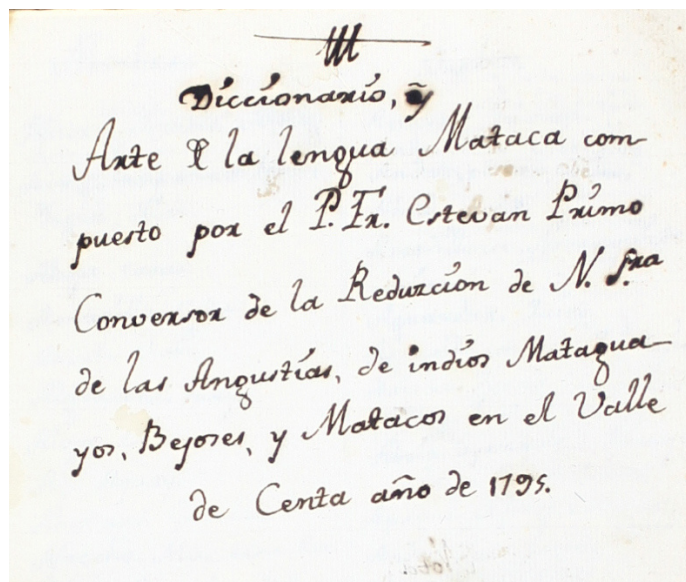 Diccionario, y
Arte de la lengua Mataca com-
puesto por el P. Fr. Estevan Primo
Conversor de la Reduccion de N. Sra
de las Angustias, de indios Matagua-
yos, Bejoses, y Matacos en el Valle
de Centa año de 1795.